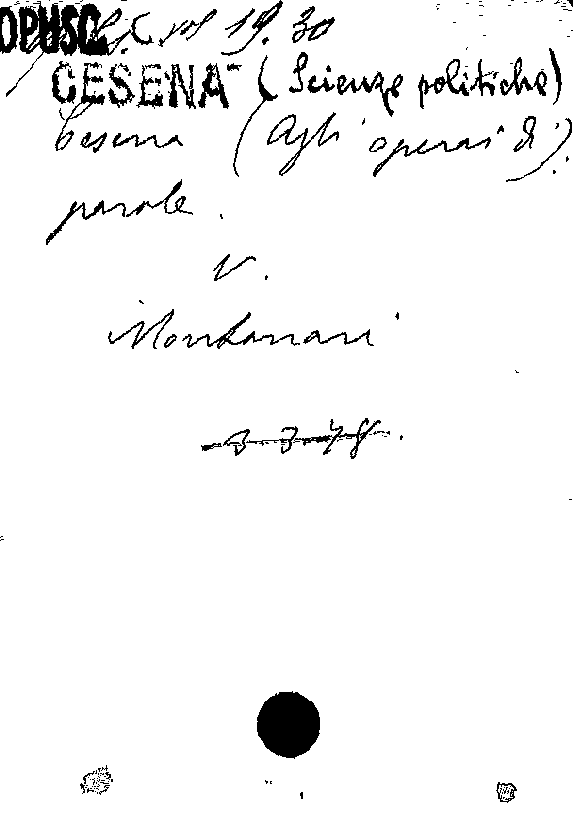 OPUSC. 19. 30
CESENA (Scienze politiche)
Cesena (Agli operai di).
parole.
V.
Montanari
3 3 78.